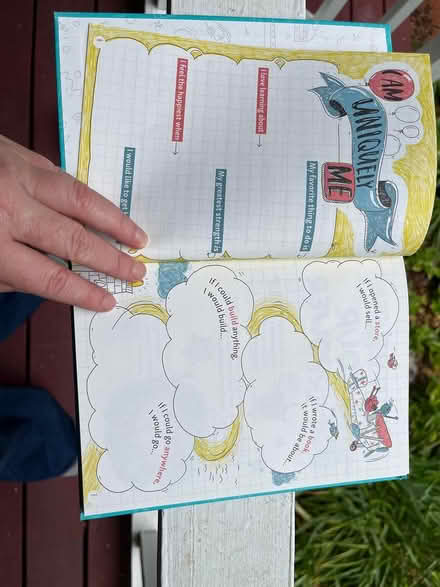 I AM
UNIQUELY
ME
My favorite thing to do is
I love learning about
My greatest strength is
I feel the happiest when
I would like to get
If I opened a store,
I would sell...
If I wrote a book,
it would be about...
If I could build anything,
I would build...
If I could go anywhere,
I would go...